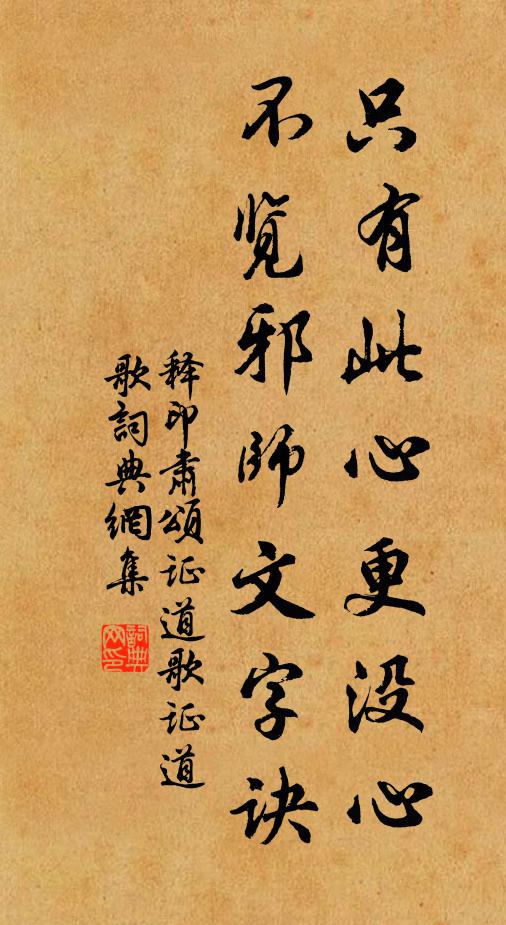 只有此心更没心
不览邪师文字诀
释印肃颂证道歌证道
歌词典網集
詞典網印